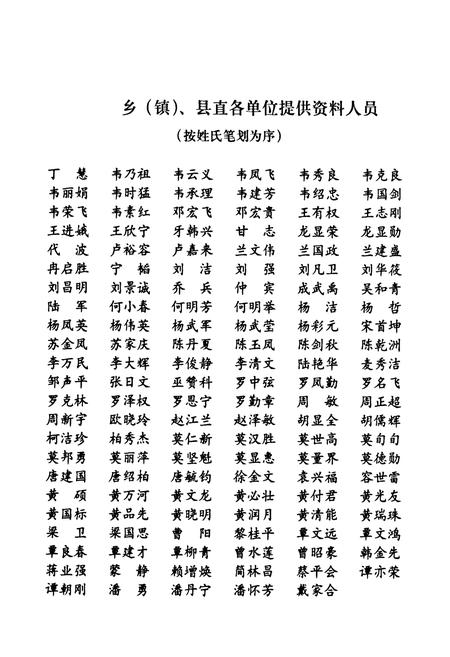 乡（镇）、县直各单位提供资料人员
（按姓氏笔划为序）
丁 慧 韦乃祖 韦云义 韦凤飞 韦秀良 韦克良
韦丽娟 韦时猛 韦承理 韦建芳 韦绍忠 韦国剑
韦荣飞 韦素红 邓宏飞 邓宏贵 王有权 王志刚
王进娀 王欣宁 牙韩兴 甘 志 龙显荣 龙显勋
代 波 卢裕容 卢嘉来 兰文伟 兰国政 兰建盛
冉启胜 宁 韬 刘 洁 刘 强 刘凡卫 刘华筱
刘昌明 刘景诚 乔 兵 仲 宾 成武禹 吴和青
陆 军 何小春 何明芳 何明举 杨 洁 杨 哲
杨凤英 杨伟英 杨武军 杨武莹 杨彩元 宋首坤
苏金凤 苏家庆 陈丹夏 陈玉凤 陈剑秋 陈乾洲
李万民 李大辉 李俊静 李清文 陆艳华 麦秀洁
邹声平 张日文 巫赞科 罗中弦 罗凤勤 罗名飞
罗克林 罗泽权 罗恩宁 罗勤章 周 敏 周正超
周新宇 欧晓玲 赵江兰 赵泽敏 胡显全 胡儒辉
柯洁珍 柏秀杰 莫仁新 莫汉胜 莫世高 莫旬旬
莫邦勇 莫丽萍 莫坚魁 莫显惠 莫董界 莫德勋
唐建国 唐绍柏 唐毓钧 徐金文 袁兴福 容世雷
黄 硕 黄万河 黄文龙 黄必壮 黄付君 黄光友
黄国标 黄品先 黄晓明 黄润月 黄清能 黄瑞珠
梁 卫 梁国思 曹 阳 黎桂平 覃文远 覃文鸿
覃良春 覃建才 覃柳青 曾水莲 曾昭豪 韩金先
蒋业强 蒙 静 赖增焕 简林昌 蔡平会 谭亦荣
谭朝刚 潘 勇 潘丹宁 潘怀芳 戴家合